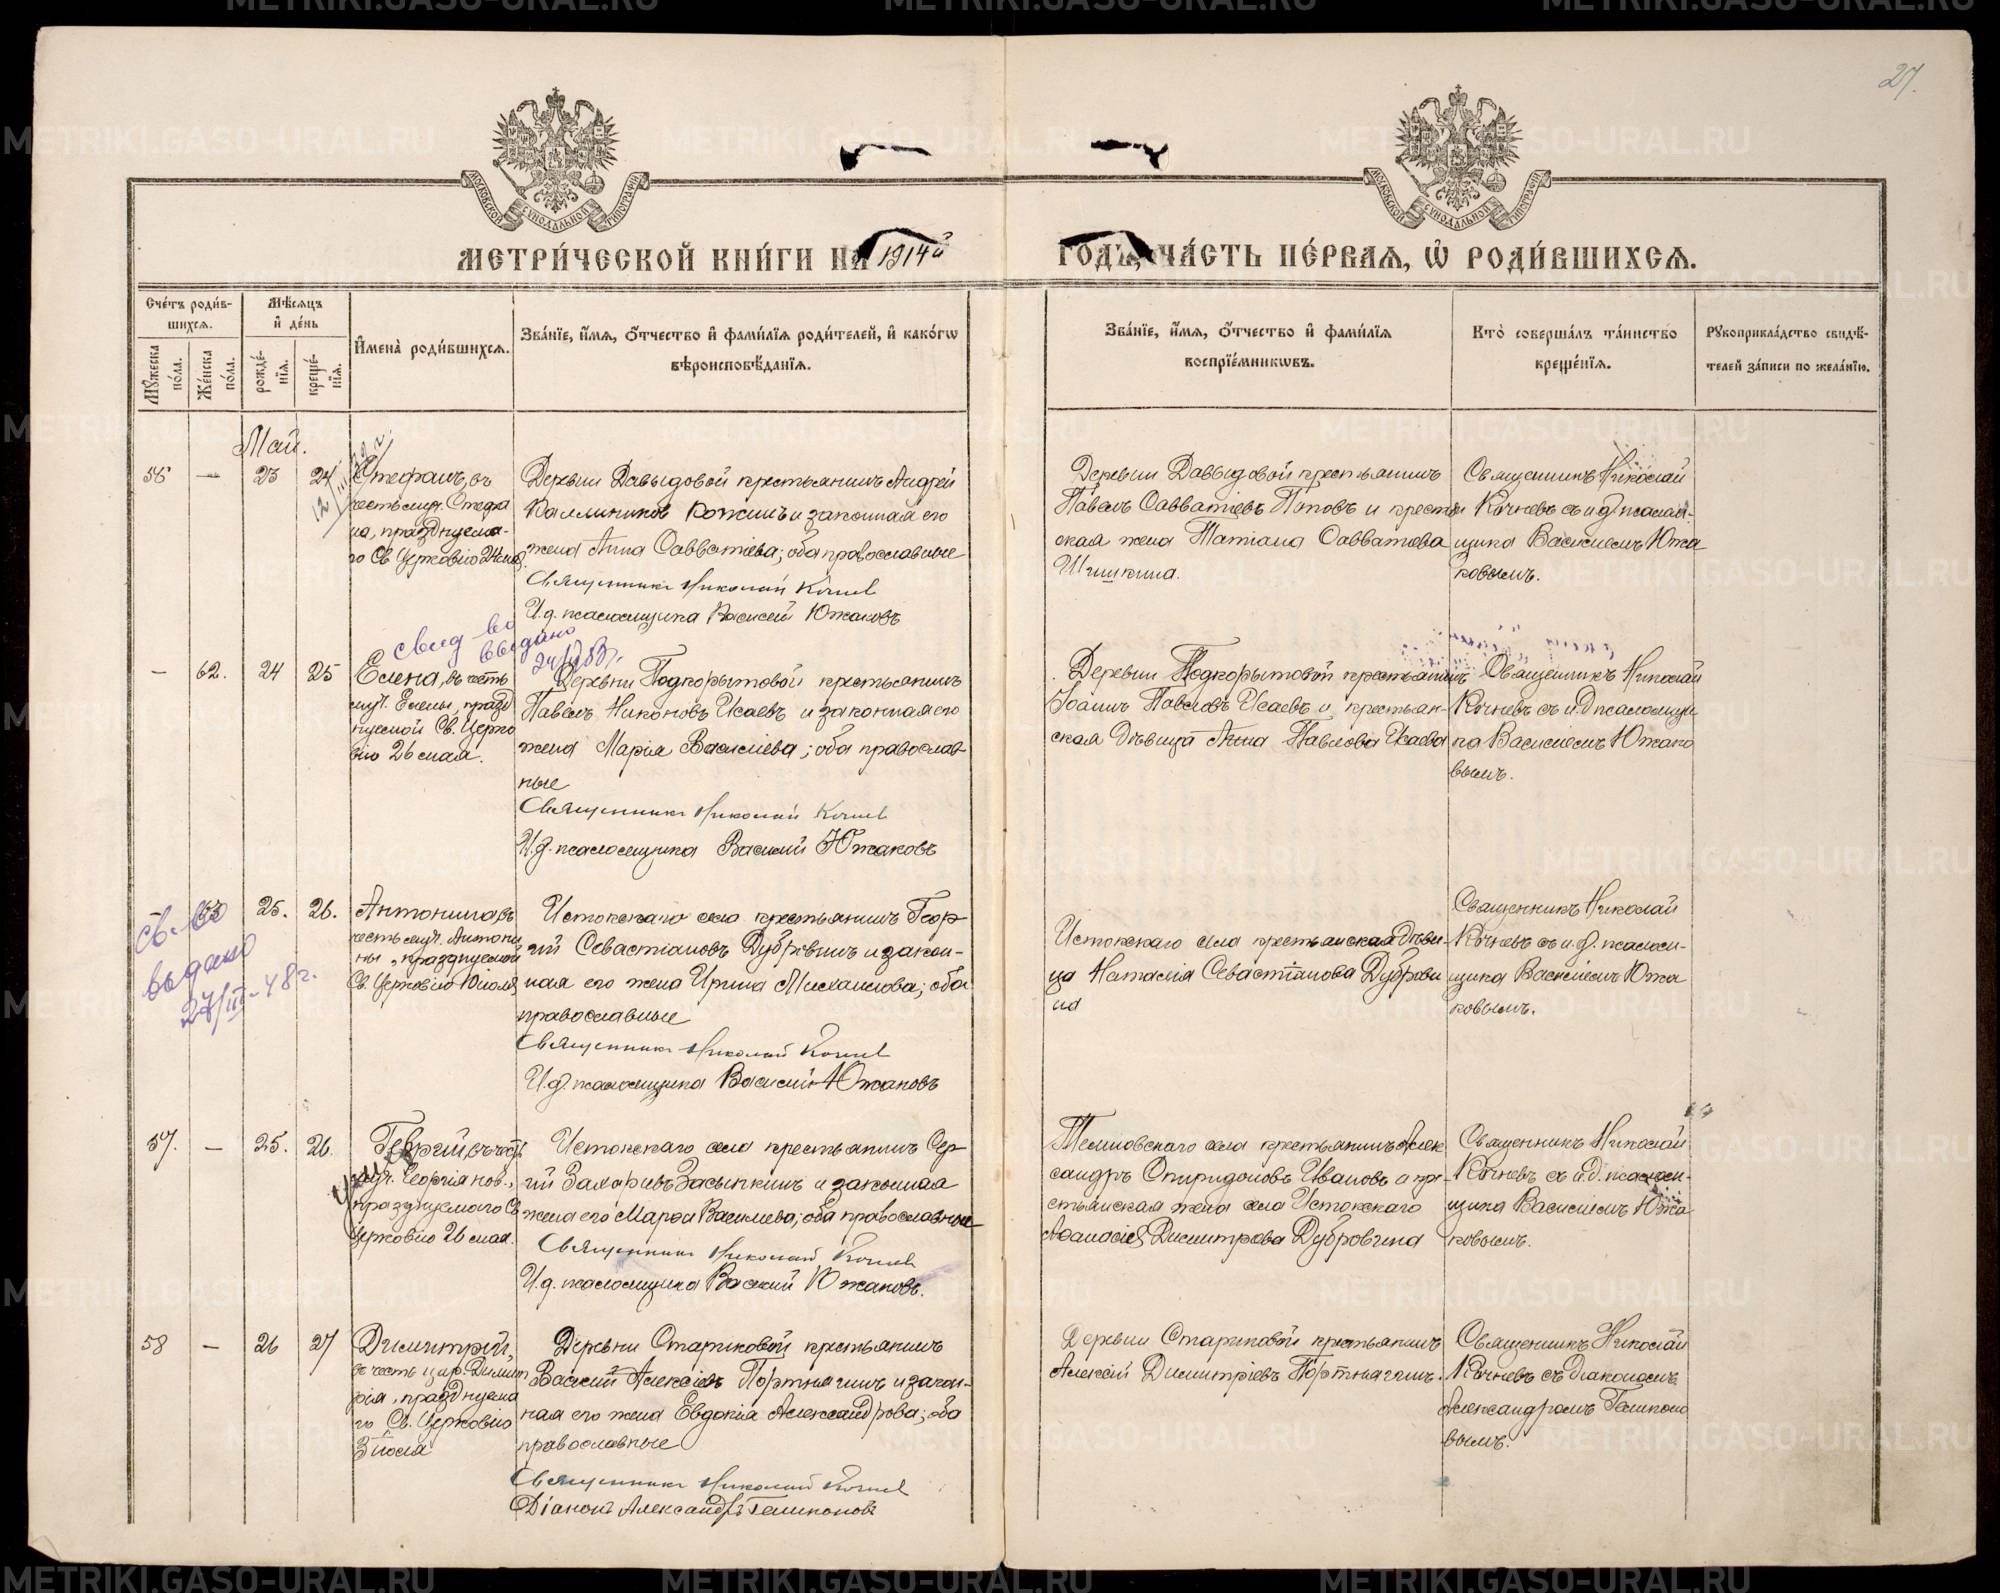 27.
МОСКОВСКОЙ СѴНОДАЛЬНОЙ ТИПОГРАФІИ
МОСКОВСКОЙ СѴНОДАЛЬНОЙ ТИПОГРАФІИ
МЕТРИ́ЧЕСКОЙ КНИ́ГИ НА 1914й
ГОДЪ, ЧА́СТЬ ПЕ́РВАѦ, Ѽ РОДИ́ВШИХСѦ.
Сче́тъ роди́в-
шихсѧ.
Мꙋжеска по́ла.
Же́нска по́ла.
Мѣ́сѧцъ
и҆ де́нь
рожде́-
нїѧ.
креще́-
нїѧ.
И҆мена̀ роди́вшихсѧ.
Зва́нїе, и҆́мѧ, о҆́тчество и҆ фами́лїѧ роди́телей, и҆ како́гѡ
вѣроисповѣ́данїѧ.
Зва́нїе, и҆́мѧ, о҆́тчество и҆ фами́лїѧ
воспрїе́мникѡвъ.
Кто̀ соверша́лъ та́инство
креще́нїѧ.
Рꙋкоприкла́дство свидѣ́-
телей за́писи по жела́нїю.
Май.
56 — 23 24
Стефанъ, въ
честь муч. Стефа
на, празднуема-
го Св. Церковію
Деревни Давыдовой крестьянинъ Андрей
Каллиников и законная его
жена Анна Савватіева; оба православные
Священникъ Николай Кочнев
И.д. псаломщика Василий Южаковъ
Деревни Давыдовой крестьянинъ
Павелъ Савватіевъ Поповъ и крестьян
ская жена Татіана Савватіева
Шишкина.
Священникъ Николай
Кочневъ съ и.д. псалом-
щика Василіемъ Южа
ковымъ.
свид-во
выдано
— 62. 24 25
Елена, въ честь
муч. Елены, празд
нуемой Св. Церко
вію 26 мая.
Деревни Подкорытовой крестьянинъ
Павелъ Никоновъ Исаевъ и законная его
жена Марія Василіева; оба православ-
ные
Священникъ Николай Кочнев
И.д. псаломщика Василий Южаковъ
Деревни Подкорытовой крестьянинъ
Іоаннъ Павловъ Исаевъ и крестьян-
ская дѣвица Анна Павлова Исаева
Священникъ Николай
Кочневъ съ и.д. псаломщи
ка Василіемъ Южако
вымъ.
— 63 25. 26.
св-во
выдано
27/III-48г.
Антонина, въ
честь муч. Антони
ны, празднуемой
Св. Церковію 10 іюня
Истокскаго села крестьянинъ Геор-
гій Севастіановъ Дубровинъ и закон-
ная его жена Ирина Михаилова; оба
православные
Священникъ Николай Кочнев
И.д. псаломщика Василий Южаковъ
Истокскаго села крестьянская дѣви-
ца Наталія Севастіанова Дуброви
на
Священникъ Николай
Кочневъ съ и.д. псалом-
щика Василіемъ Южа
ковымъ.
57. — 25. 26.
Георгій, въ честь
муч. Георгія нов.,
празднуемаго Св.
Церковію 26 мая.
Истокскаго села крестьянинъ Сер-
гій Захаровъ Засыпкинъ и законная
жена его Марѳа Василіева; оба православные
Священникъ Николай Кочнев
И.д. псаломщика Василий Южаковъ.
Темновскаго села крестьянинъ Алек
сандръ Спиридоновъ Ивановъ и кре-
стьянская жена села Истокскаго
Аѳанасія Димитрова Дубровина
Священникъ Николай
Кочневъ съ и.д. псалом-
щика Василіемъ Южа
ковымъ.
58 — 26 27
Димитрий,
въ честь цар. Димит
рія, празднуема
го Св. Церковію
3 іюня
Деревни Стариковой крестьянинъ
Василий Алексіевъ Портнягинъ и закон-
ная его жена Евдокія Александрова; оба
православные
Священникъ Николай Кочнев
Діаконъ Александръ Геликоновъ
Деревни Стариковой крестьянинъ
Алексій Димитріевъ Портнягинъ.
Священникъ Николай
Кочневъ съ діакономъ
Александромъ Геликоно
вымъ.